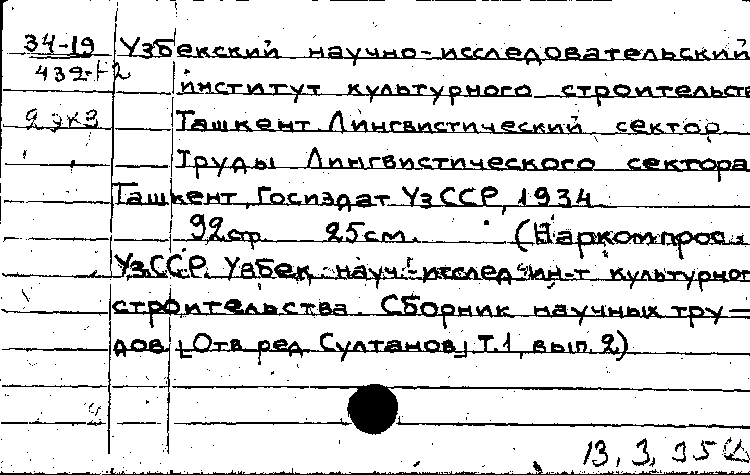 34-19 Узбекский научно-исследовательский
439-12 институт культурного строительств
2 экз Ташкент. Лингвистический сектор.
Труды Лингвистического сектора
Ташкент, Госиздат УзССР, 1934.
92 стр. 25 см. (Наркомпрос.
УзССР. Узбек. науч.-исслед. ин-т культурног
строительства. Сборник научных тру-
дов [Отв. ред. Султанов] Т.1, вып. 2)
13, 3, 35